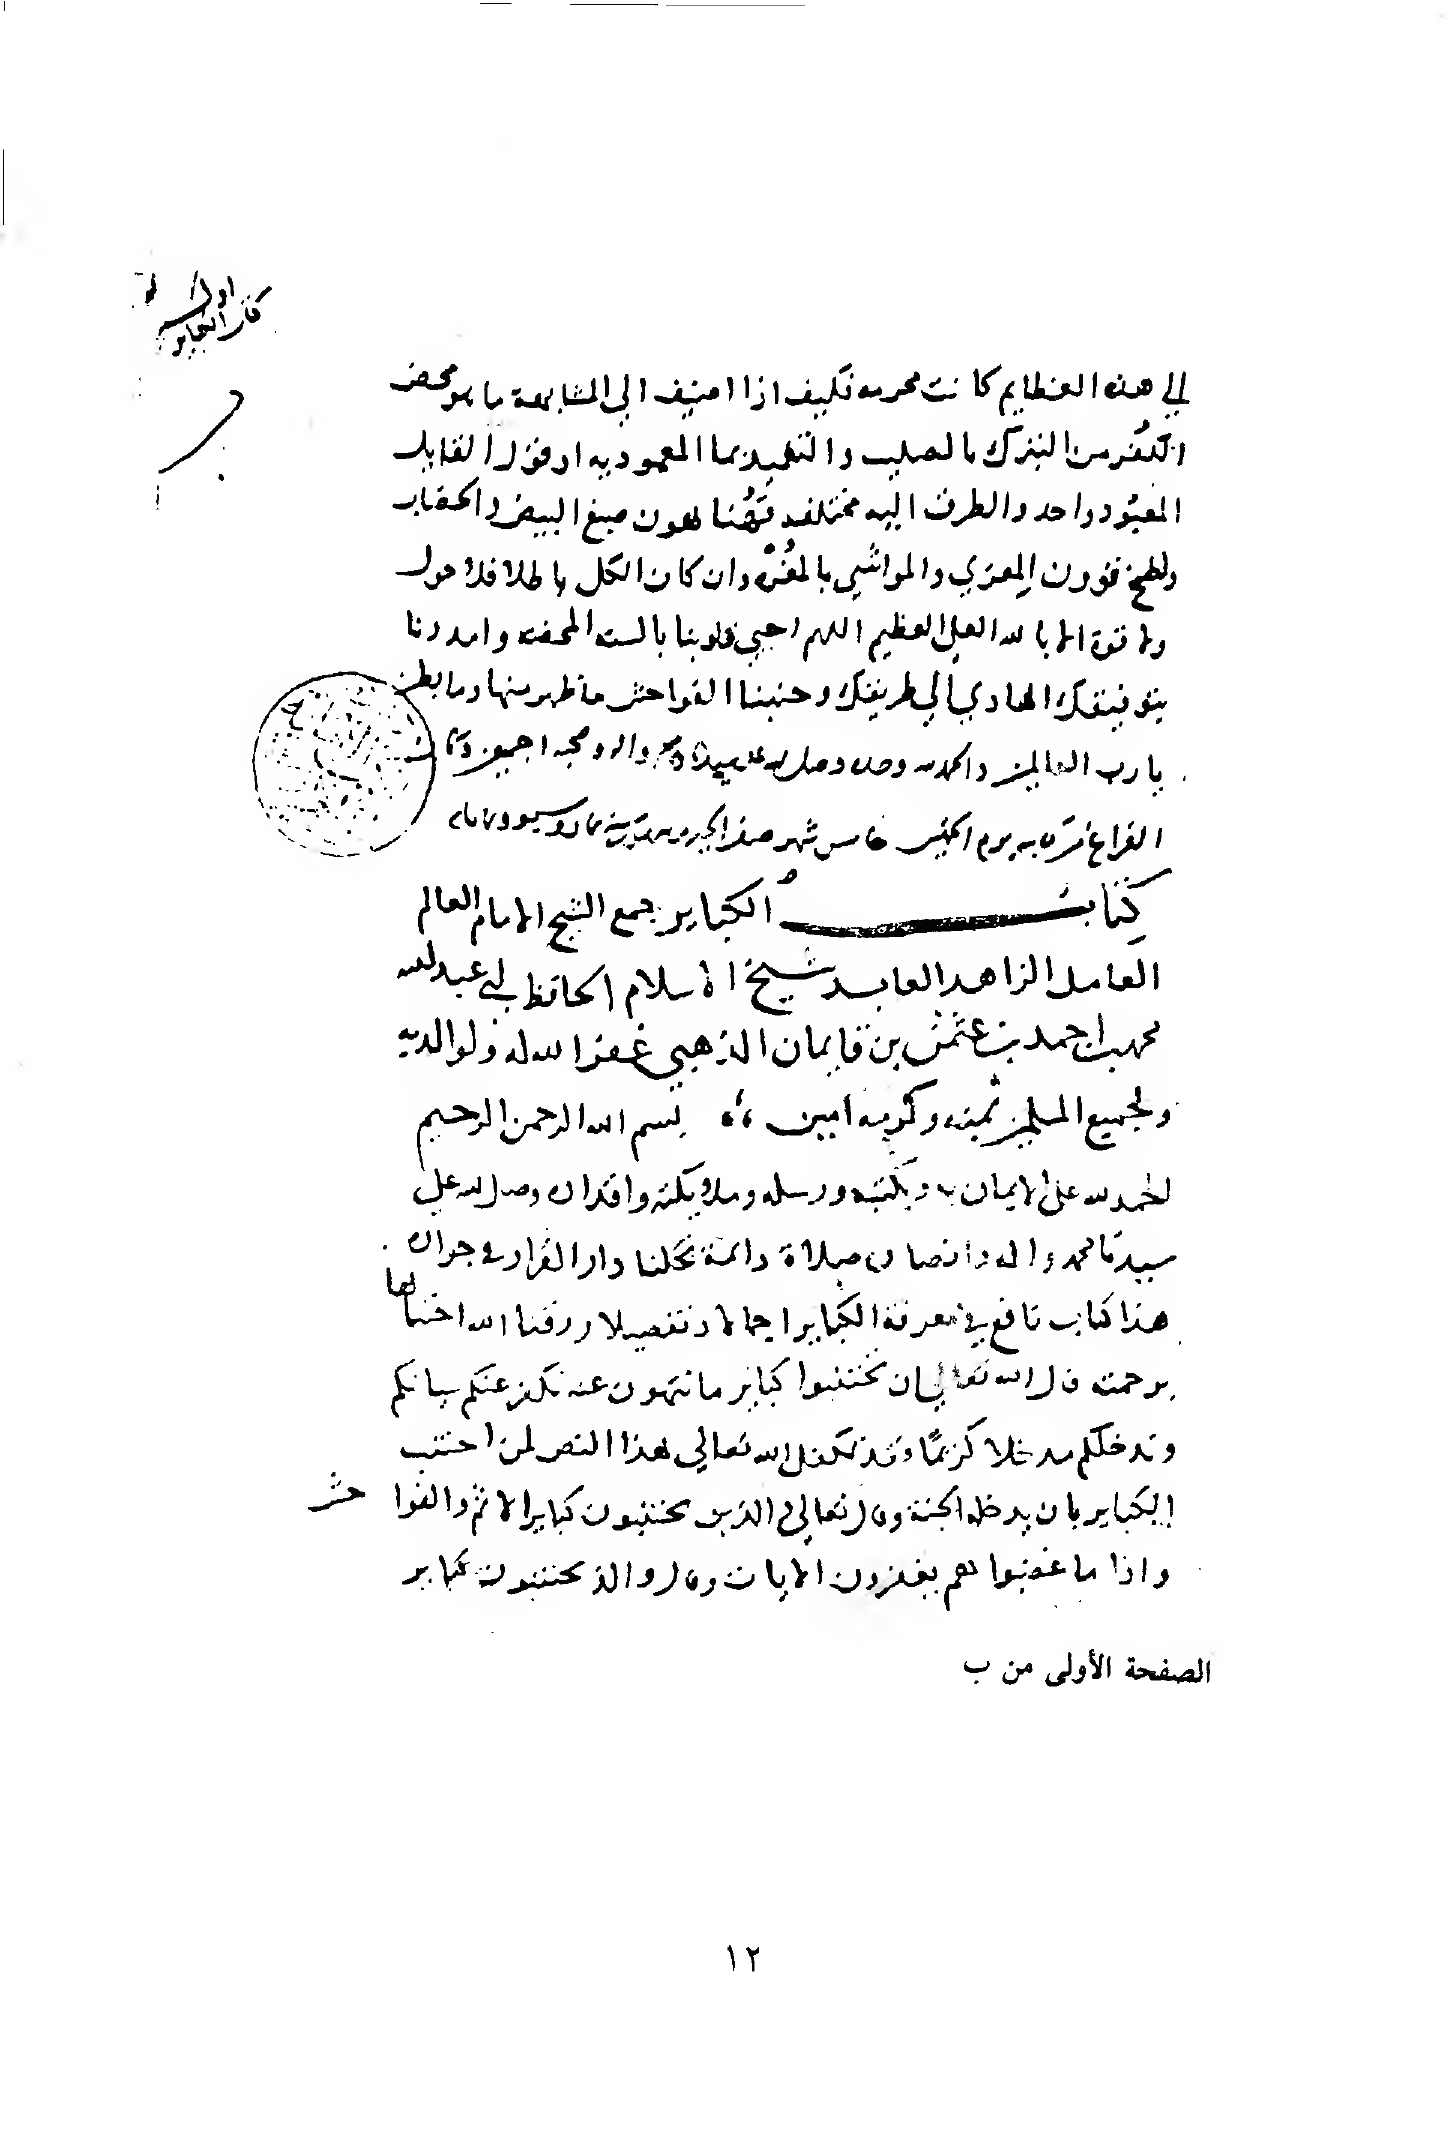 اول
كتاب الكباير
الى هذه العظايم كانت محرمه فكيف اذا اضيف الى المشابهة ما هو محض
الكفر من التبرك بالصليب والتغميد بما المعموديه او قول القايل
المعبود واحد والطرق اليه مختلفه فهنا يهون صبغ البيض والحقاب
ولطخ قرون المعزي والمواشي بالمغره وان كان الكل باطلا فلا حول
ولا قوة الا بالله العلي العظيم اللهم احيي قلوبنا بالسنه المحضه وامددنا
بتوفيقك الهادي الى طريقك وجنبنا الفواحش ما ظهر منها وما بطن
يا رب العالمين والحمد لله وحده وصلى الله على سيدنا محمد واله وصحبه اجمعين وكان
الفراغ يوم الخميس خامس شهر صفر
كتاب الكباير جمع الشيخ الامام العالم
العامل الزاهد العابد شيخ الاسلام الحافظ ابي عبد الله
محمد بن احمد بن عثمن بن قايمان الذهبي غفر الله له ولوالديه
ولجميع المسلمين بمنه وكرمه امين بسم الله الرحمن الرحيم
الحمد لله على الايمان به وبكتبه ورسله وملايكته واقداره وصلى الله على
سيدنا محمد واله وانصاره صلاة دائمة تحلنا دار القرار في جواره
هذا كتاب نافع في معرفة الكباير اجمالا وتفصيلا رزقنا الله اجتنابها
برحمته قال الله تعالى ان تجتنبوا كباير ما تنهون عنه نكفر عنكم سياتكم
وندخلكم مدخلا كريما وقد تكفل الله تعالى بهذا النص لمن اجتنب
الكباير بان يدخله الجنة وقال تعالى والذين يجتنبون كباير الاثم والفواحش
واذا ما غضبوا هم يغفرون الايات وقال والذ يجتنبون كباير
الصفحة الأولى من ب
١٢